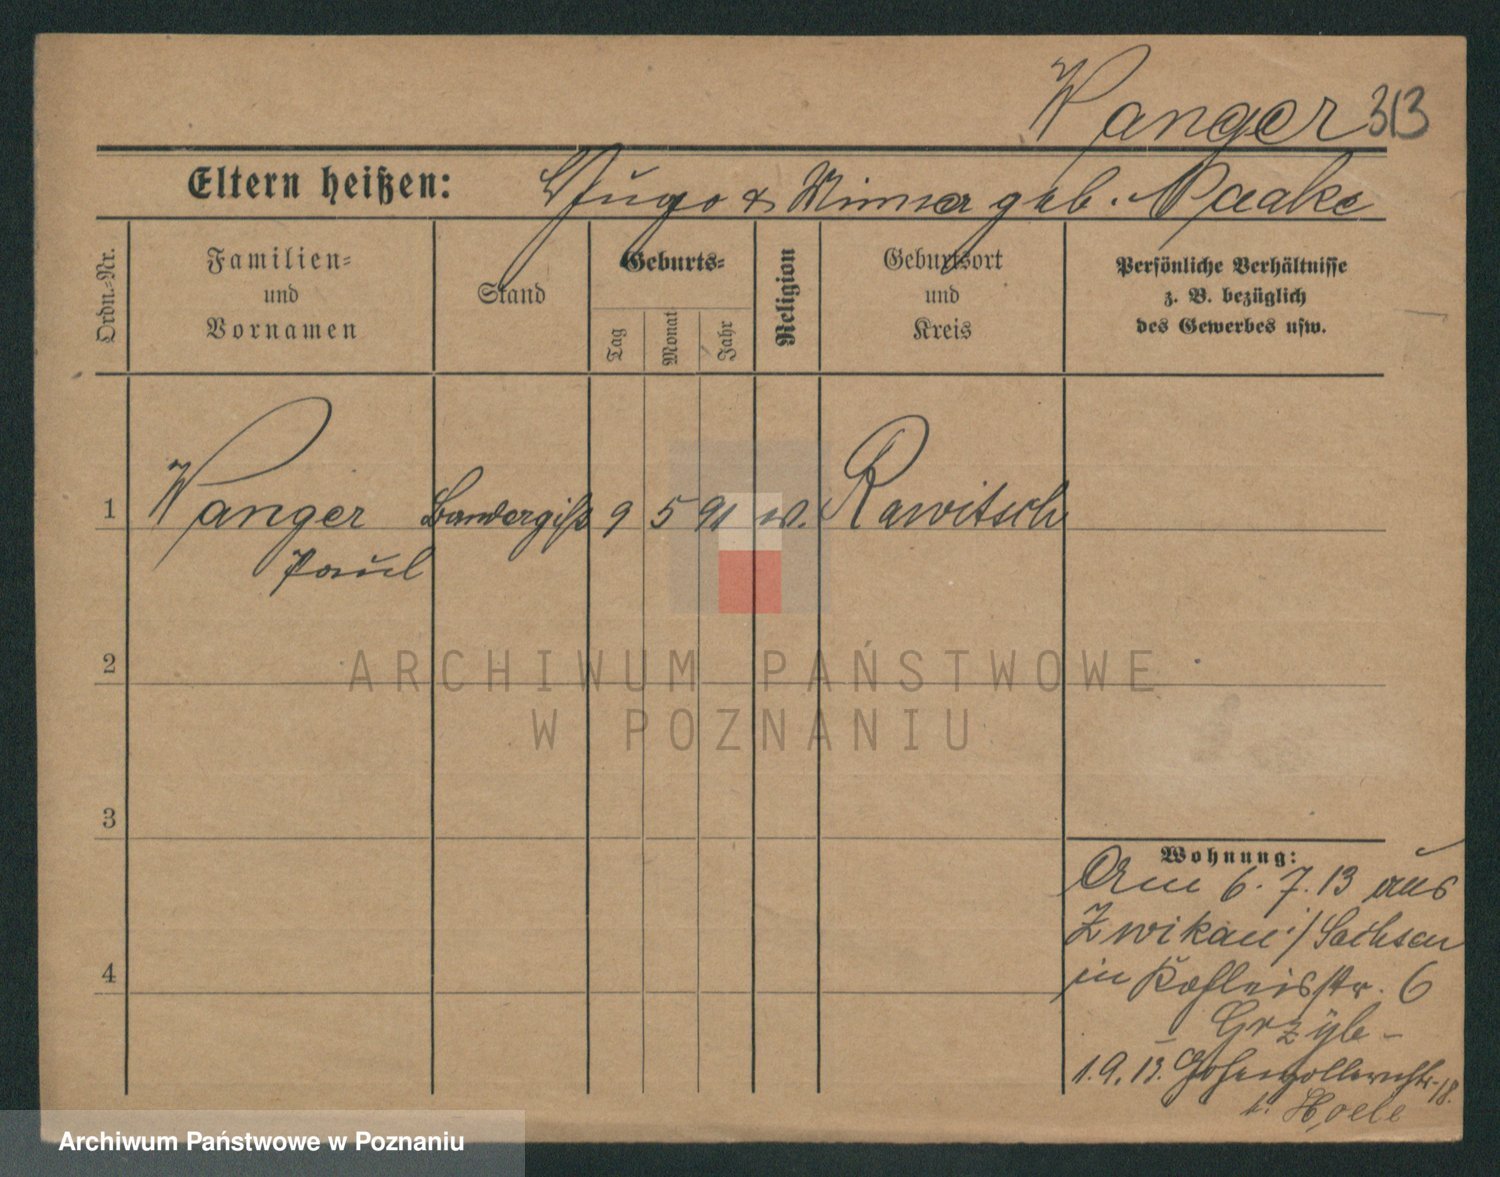 Wanger 313
Eltern heißen: Hugo & Minna geb. Paake
Ordn.-Nr.
Familien-
und
Vornamen
Stand
Geburts-
Tag
Monat
Jahr
Religion
Geburtsort
und
Kreis
Persönliche Verhältnisse
z. B. bezüglich
des Gewerbes usw.
1 Wanger 9 5 91 Rawitsch
Paul
2
3
4
Wohnung:
Am 6.7.13 aus
Zwikau i/Sachsen
in 6
Grzyb-
1.9.13. Hohenzollernstr. 18.
b.
ARCHIWUM PAŃSTWOWE
W POZNANIU
Archiwum Państwowe w Poznaniu